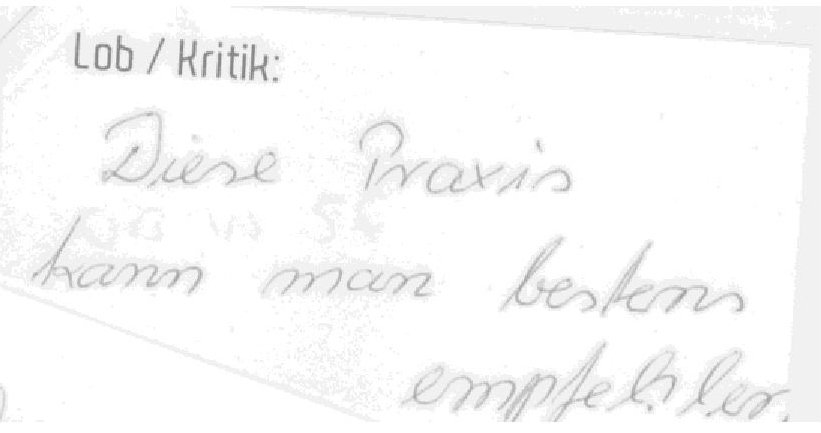 Lob / Kritik:
Diese Praxis
kann man bestens
empfehlen